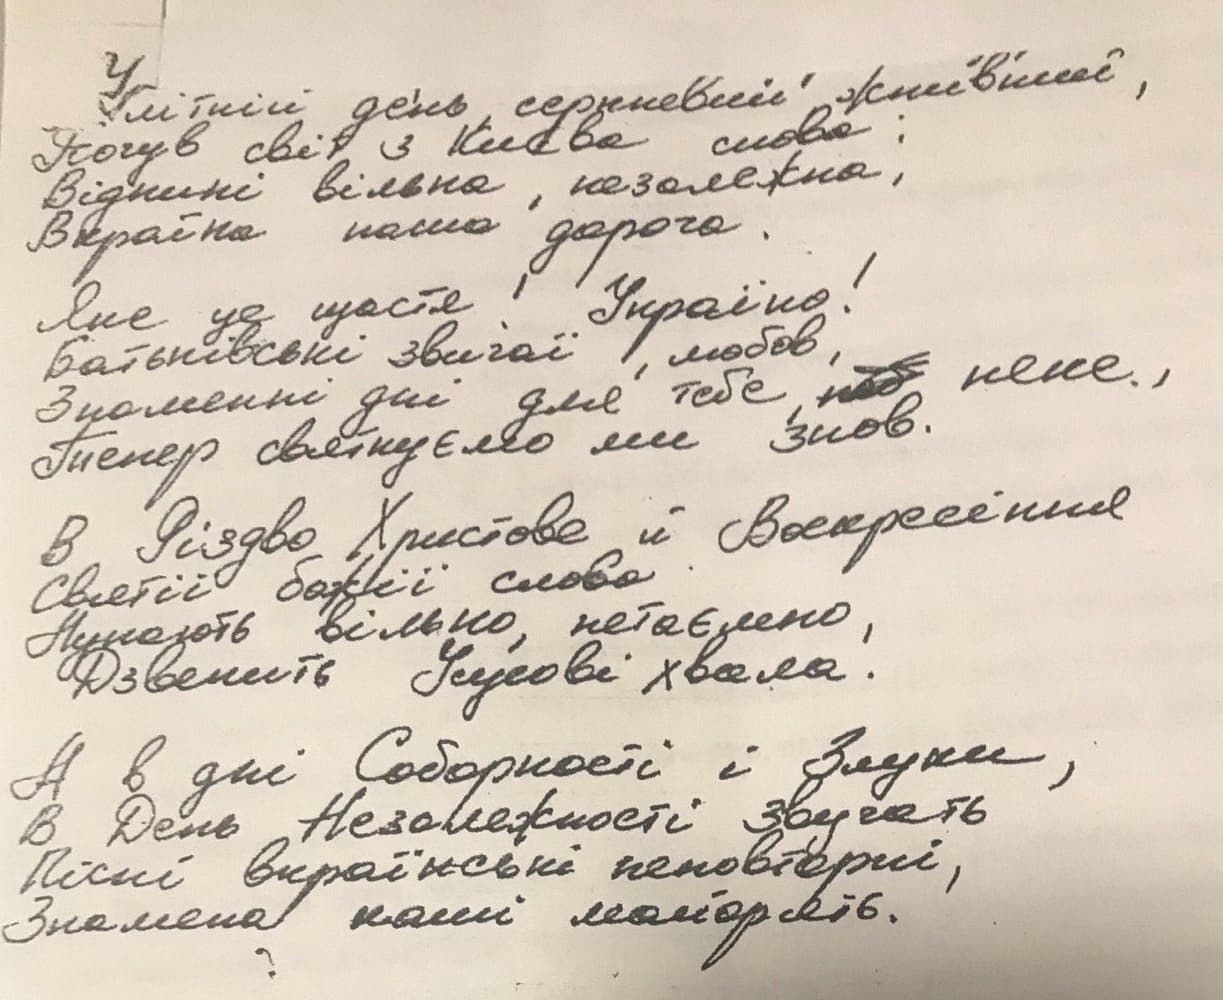 У літній день серпневий жнивний,
Почув світ з Києва слова:
Віднині вільна, незалежна,
Вкраїна наша дорога.
Яке це щастя! Україно!
Батьківські звичаї, любов,
Знаменні дні для тебе, нене,
Тепер святкуємо ми знов.
В Різдво Христове й Воскресіння
Святії божії слова
Лунають вільно, нетаємно,
Дзвенить Ісусові хвала.
А в дні Соборності і Злуки,
В День Незалежності звучать
Пісні вкраїнські неповторні,
Знамена наші майорять.